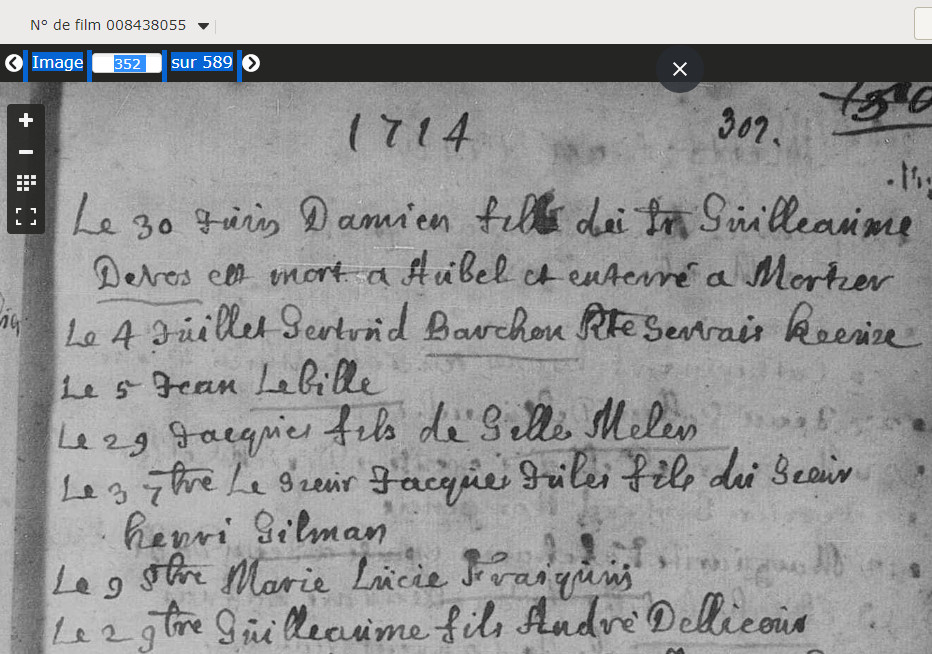 N° de film 008438055
Image 352 sur 589
1714
302.
Le 30 Juin Damien fils du Sr. Guilleaume
Devos est mort a Aubel et enterré a Mortier
Le 4 Juillet Gertrud Barchon Rte Servais Keenze
Le 5 Jean Lebille
Le 29 Jacques fils de Gille Melen
Le 3 7tbre Le Sieur Jacques Jules fils du Sieur
henri Gilman
Le 9 8bre Marie Lucie Fraiquins
Le 2 9bre Guilleaume fils André Dellicour